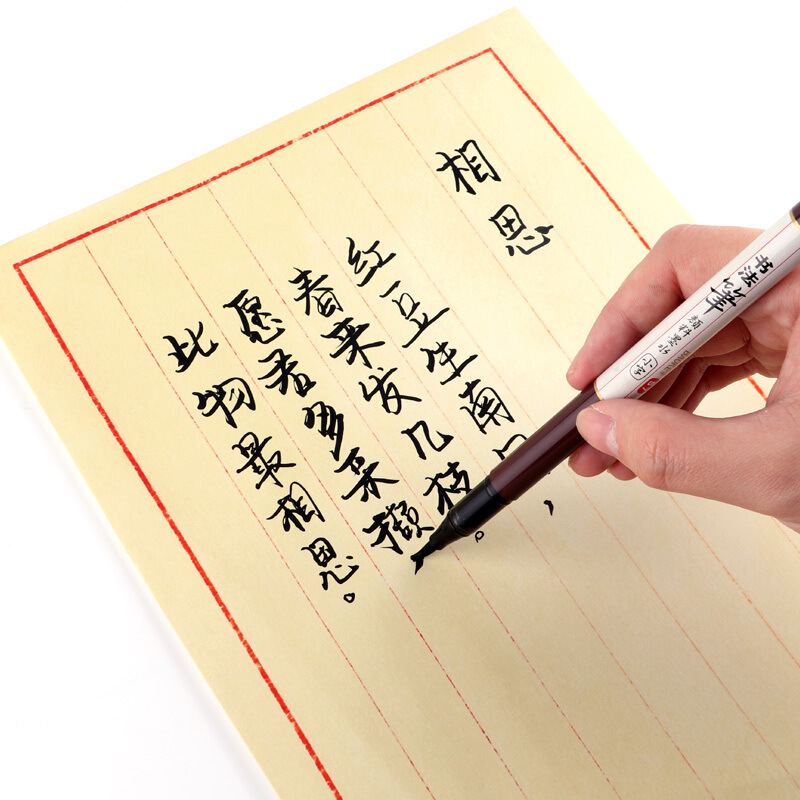 相思
红豆生南
春来发几枝。
愿君多采撷,
此物最相思。
书法笔
颜料墨水
小字